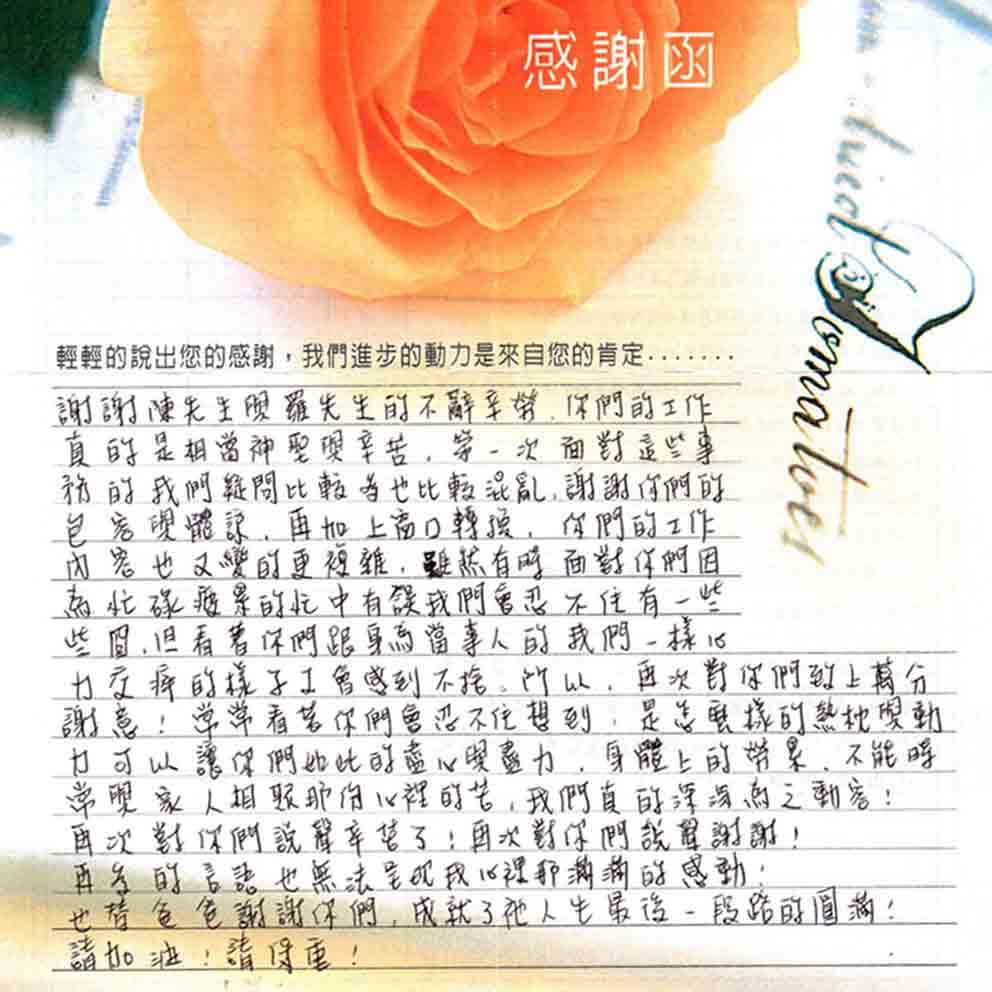 感謝函
輕輕的說出您的感謝，我們進步的動力是來自您的肯定·······
謝謝陳先生與羅先生的不辭辛勞．你們的工作
真的是相當神聖與辛苦．第一次面對這些事
務的我們疑問比較多也比較混亂．謝謝你們的
包容與體諒．再加上窗口轉換．你們的工作
內容也又變的更複雜．雖然有時面對你們因
為忙碌疲累的忙中有誤我們會忍不住有一些
些悶．但看著你們跟身為當事人的我們一樣心
力交瘁的樣子又會感到不捨．所以．再次對你們致上萬分
謝意！常常看著你們會忍不住想到．是怎麼樣的熱忱與動
力可以讓你們如此的盡心與盡力．身體上的勞累．不能時
常與家人相聚那份心裡的苦．我們真的深深為之動容！
再次對你們說聲辛苦了！再次對你們說聲謝謝！
再多的言語也無法呈現我心裡那滿滿的感動！
也替爸爸謝謝你們．成就了祂人生最後一段路的圓滿！
請加油！請保重！